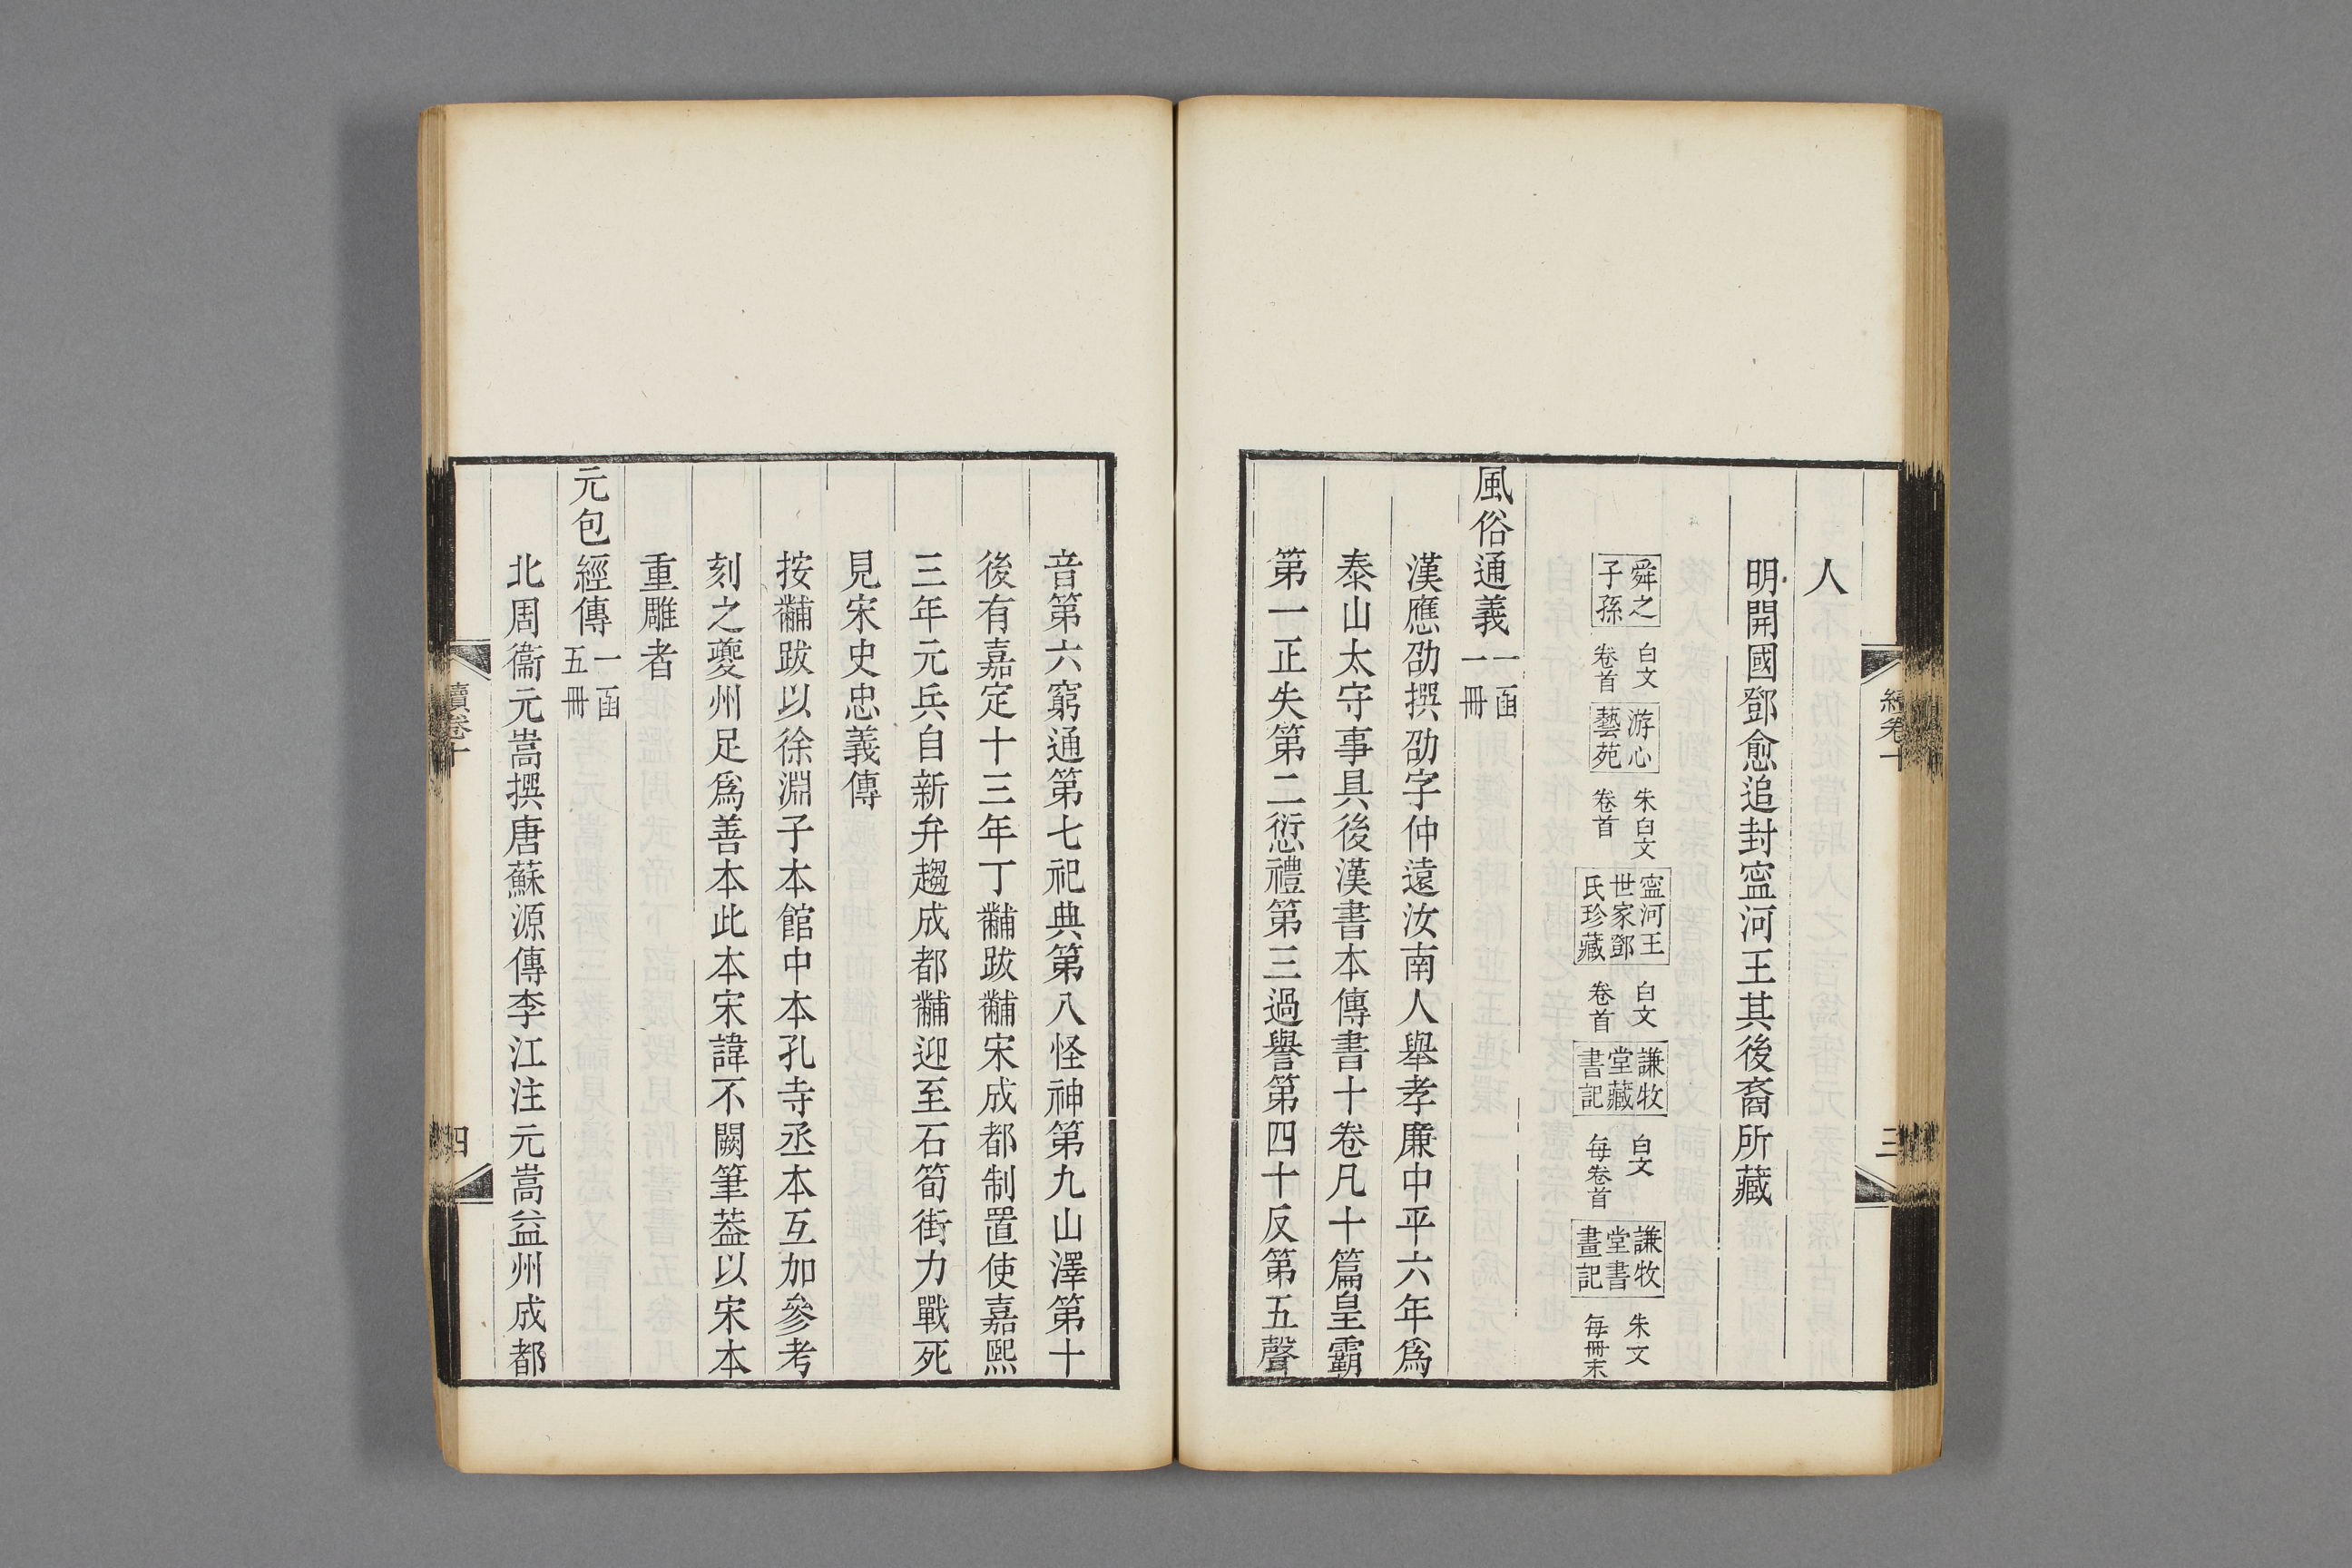 人
明開國鄧愈追封寍河王其後裔所藏
舜之子孫 白文卷首 游心藝苑 朱白文卷首 寍河王世家鄧氏珍藏 白文卷首 謙牧堂藏書記 白文每卷首 謙牧堂書畫記 朱文每冊末
風俗通義 一函一冊
漢應劭撰劭字仲遠汝南人舉孝廉中平六年爲
泰山太守事具後漢書本傳書十卷凡十篇皇霸
第一正失第二愆禮第三過譽第四十反第五聲
續卷十 三
音第六窮通第七祀典第八怪神第九山澤第十
後有嘉定十三年丁黼跋黼宋成都制置使嘉熙
三年元兵自新井趨成都黼迎至石筍街力戰死
見宋史忠義傳
按黼跋以徐淵子本館中本孔寺丞本互加參考
刻之夔州足爲善本此本宋諱不闕筆葢以宋本
重雕者
元包經傳 一函五冊
北周衞元嵩撰唐蘇源傳李江注元嵩益州成都
續卷十 四